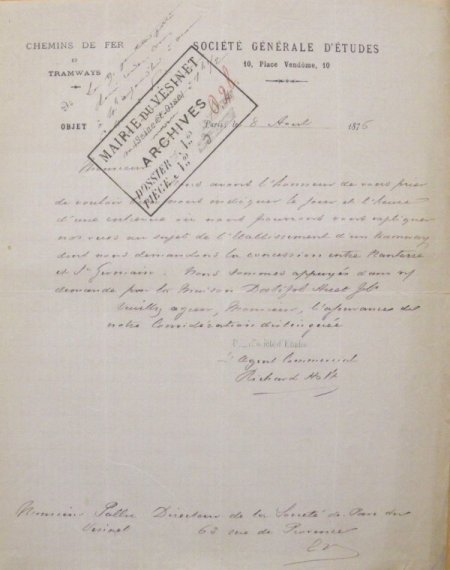 CHEMINS DE FER
ET
TRAMWAYS
OBJET
SOCIÉTÉ GÉNÉRALE D'ÉTUDES
10, Place Vendôme, 10
MAIRIE DU VÉSINET
ARCHIVES
DOSSIER
PIÈCE
Paris, le 8 1876
Monsieur
avons l'honneur de vous prier
de vouloir nous indiquer le jour et l'heure
d'une entrevue où nous pourrons vous expliquer
nos vues au sujet de l'établissement d'un tramway
dont nous demandons la concession entre Nanterre
et St Germain. Nous sommes appuyés dans
demande par la Maison
Veuillez agréer, Monsieur, l'assurance de
notre considération distinguée
L'agent Commercial
Richard
Monsieur Pallu Directeur de la Société de
Vésinet 63 rue de Provence